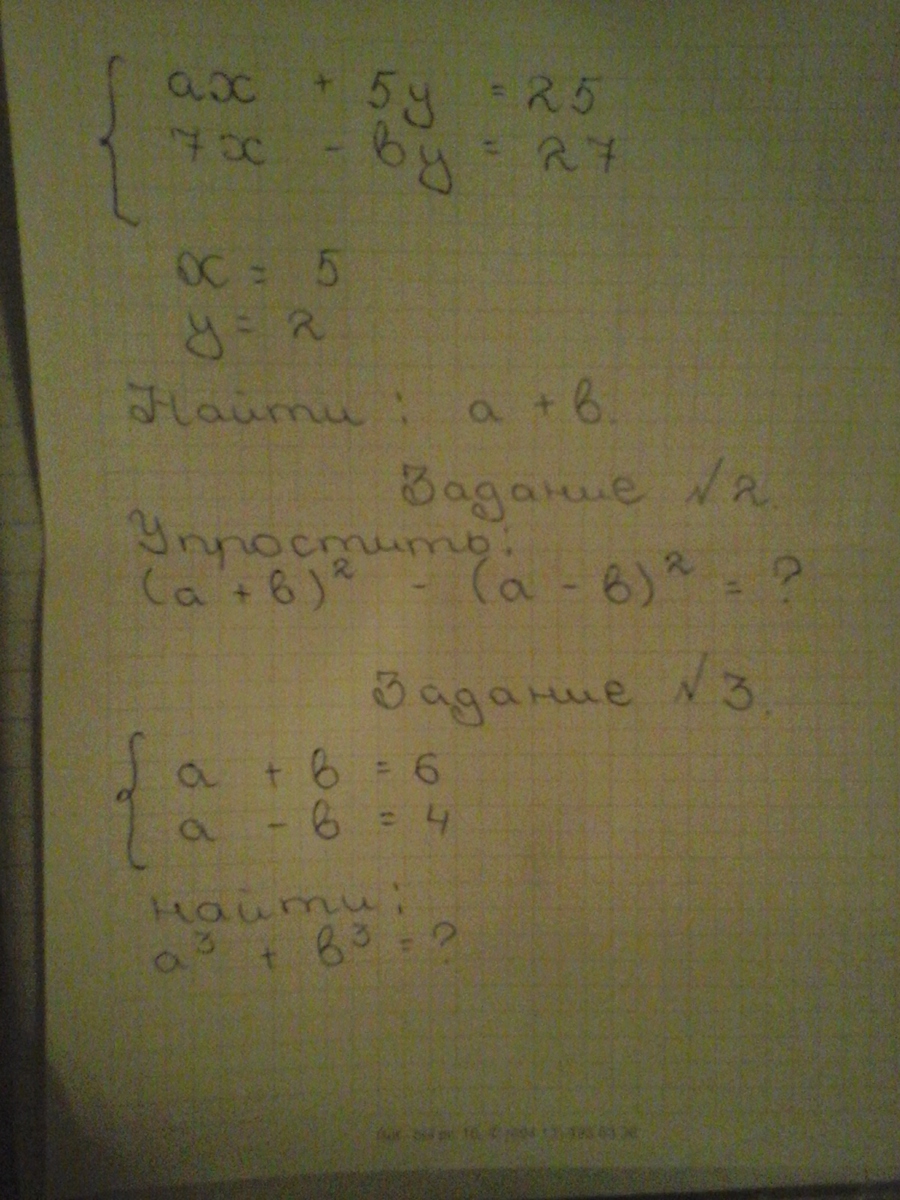 ax + 5y = 25
7x - вy = 27
x = 5
y = 2
Найти: a + в.
Задание №2.
Упростить:
(a + в)² - (a - в)² = ?
Задание №3.
a + в = 6
a - в = 4
найти:
a³ + в³ = ?